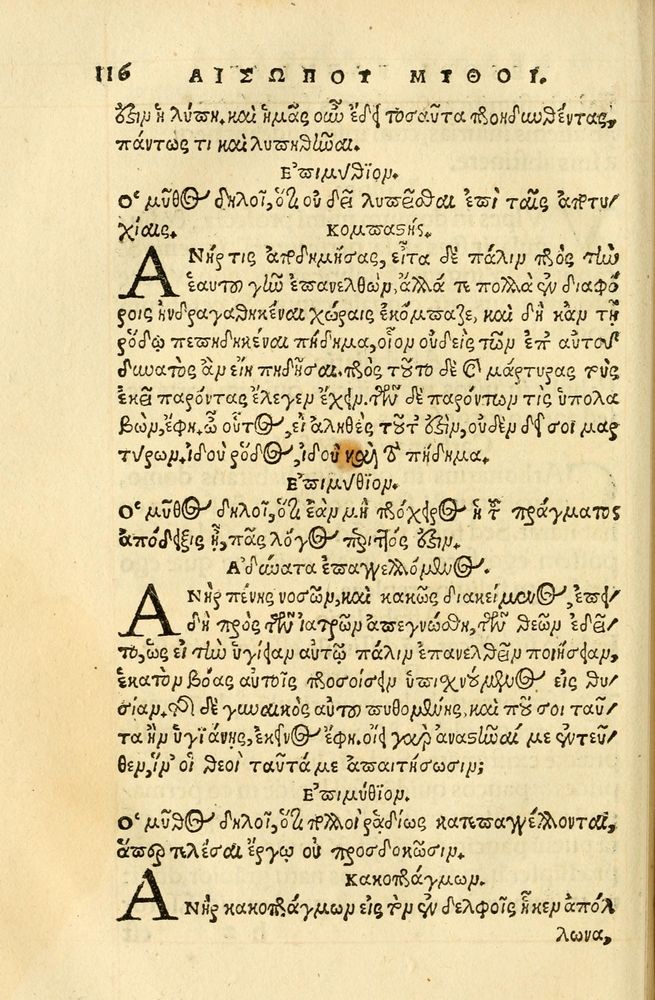 116 ΑΙΣΩΠΟΥ ΜΥΘΟΙ.
ἐστιν ἡ λύπη. καὶ ἡμᾶς οὖν ἔδει τοσαῦτα προηδυνθέντας,
πάντως τι καὶ λυπηθῆναι.
Ἐπιμύθιον.
Ὁ μῦθος δηλοῖ, ὅτι οὐ δεῖ λυπεῖσθαι ἐπὶ ταῖς ἀποτυ/
χίαις. Κομπαστής.
ΑΝήρ τις ἀποδημήσας, εἶτα δὲ πάλιν πρὸς τὴν
ἑαυτοῦ γῆν ἐπανελθὼν, ἄλλά τε πολλὰ ἐν διαφό
ροις ἠνδραγαθηκέναι χώραις ἐκόμπαζε, καὶ δὴ κἀν τῇ
ῥόδῳ πεπηδηκέναι πήδημα, οἷον οὐδεὶς τῶν ἐπ' αὐτοῦ
δυνατὸς ἂν εἴη πηδῆσαι. πρὸς τοῦτο δὲ καὶ μάρτυρας τοὺς
ἐκεῖ παρόντας ἔλεγεν ἔχειν. τῶν δὲ παρόντων τὶς ὑπολα
βὼν, ἔφη. ὦ οὗτος, εἰ ἀληθὲς τοῦτ' ἐστιν, οὐδὲν δεῖ σοι μαρ
τύρων. ἰδοὺ ῥόδος, ἰδοὺ καὶ τὸ πήδημα.
Ἐπιμύθιον.
Ὁ μῦθος δηλοῖ, ὅτι ἐὰν μὴ πρόχειρος ἡ τοῦ πράγματος
ἀπόδειξις ᾖ, πᾶς λόγος περιττός ἐστιν.
Ἀδύνατα ἐπαγγελλόμενος.
ΑΝὴρ πένης νοσῶν, καὶ κακῶς διακείμενος, ἐπεὶ
δὴ πρὸς τῶν ἰατρῶν ἀπεγνώσθη, τῶν θεῶν ἐδεῖ
το, ὡς εἰ τὴν ὑγίειαν αὐτῷ πάλιν ἐπανελθεῖν ποιήσειαν,
ἑκατὸν βόας αὐτοῖς προσοίσειν ὑπισχνούμενος εἰς θυ/
σίαν. τῆς δὲ γυναικὸς αὐτοῦ πυθομένης, καὶ ποῦ σοι ταῦ/
τα ἢν ὑγιάνῃς, ἐκεῖνος ἔφη. οἴει γὰρ ἀναστῆναί με ἐντεῦ/
θεν, ἵν' οἱ θεοὶ ταῦτά με ἀπαιτήσωσιν;
Ἐπιμύθιον.
Ὁ μῦθος δηλοῖ, ὅτι πολλοὶ ῥαδίως κατεπαγγέλλονται,
ἅπερ τελέσαι ἔργῳ οὐ προσδοκῶσιν.
Κακοπράγμων.
ΑΝὴρ κακοπράγμων εἰς τὸν ἐν δελφοῖς ἧκεν ἀπόλ
λωνα,